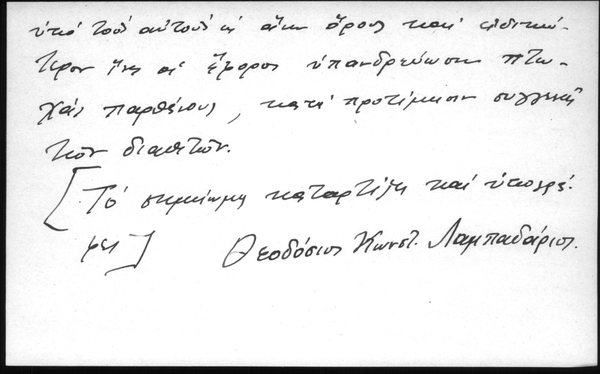 ὑπό τούς αὐτούς ὡς ἄνω ὅρους καί εἰδικώ-
τερον ἵνα οἱ ἔφοροι ὑπανδρεύωσιν πτω-
χάς παρθένους, κατά προτίμησιν συγγενεῖς
τῶν διαθετῶν.
[Τό σημείωμα καταρτίζει καί ὑπογρά-
φει] Θεοδόσιος Κωνστ. Λαμπαδάριος.